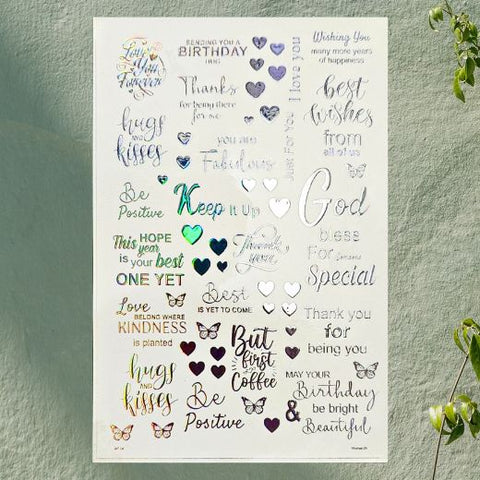 Love
You
Forever
SENDING YOU A
BIRTHDAY
HUG
I love you
Wishing You
many more years
of happiness
Thanks
for being there
for me
best
wishes
from
all of us
hugs
AND
kisses
you are
Fabulous
Just For You
Be
Positive
Keep It Up
God
bless
For
Special
This HOPE
year
is your best
ONE YET
Thank
you
Best
IS YET TO COME
Love
BELONG WHERE
KINDNESS
is planted
But
first
Coffee
Thank you
for
being you
hugs
AND
kisses
Be
Positive
MAY YOUR
Birthday
be bright
&
Beautiful